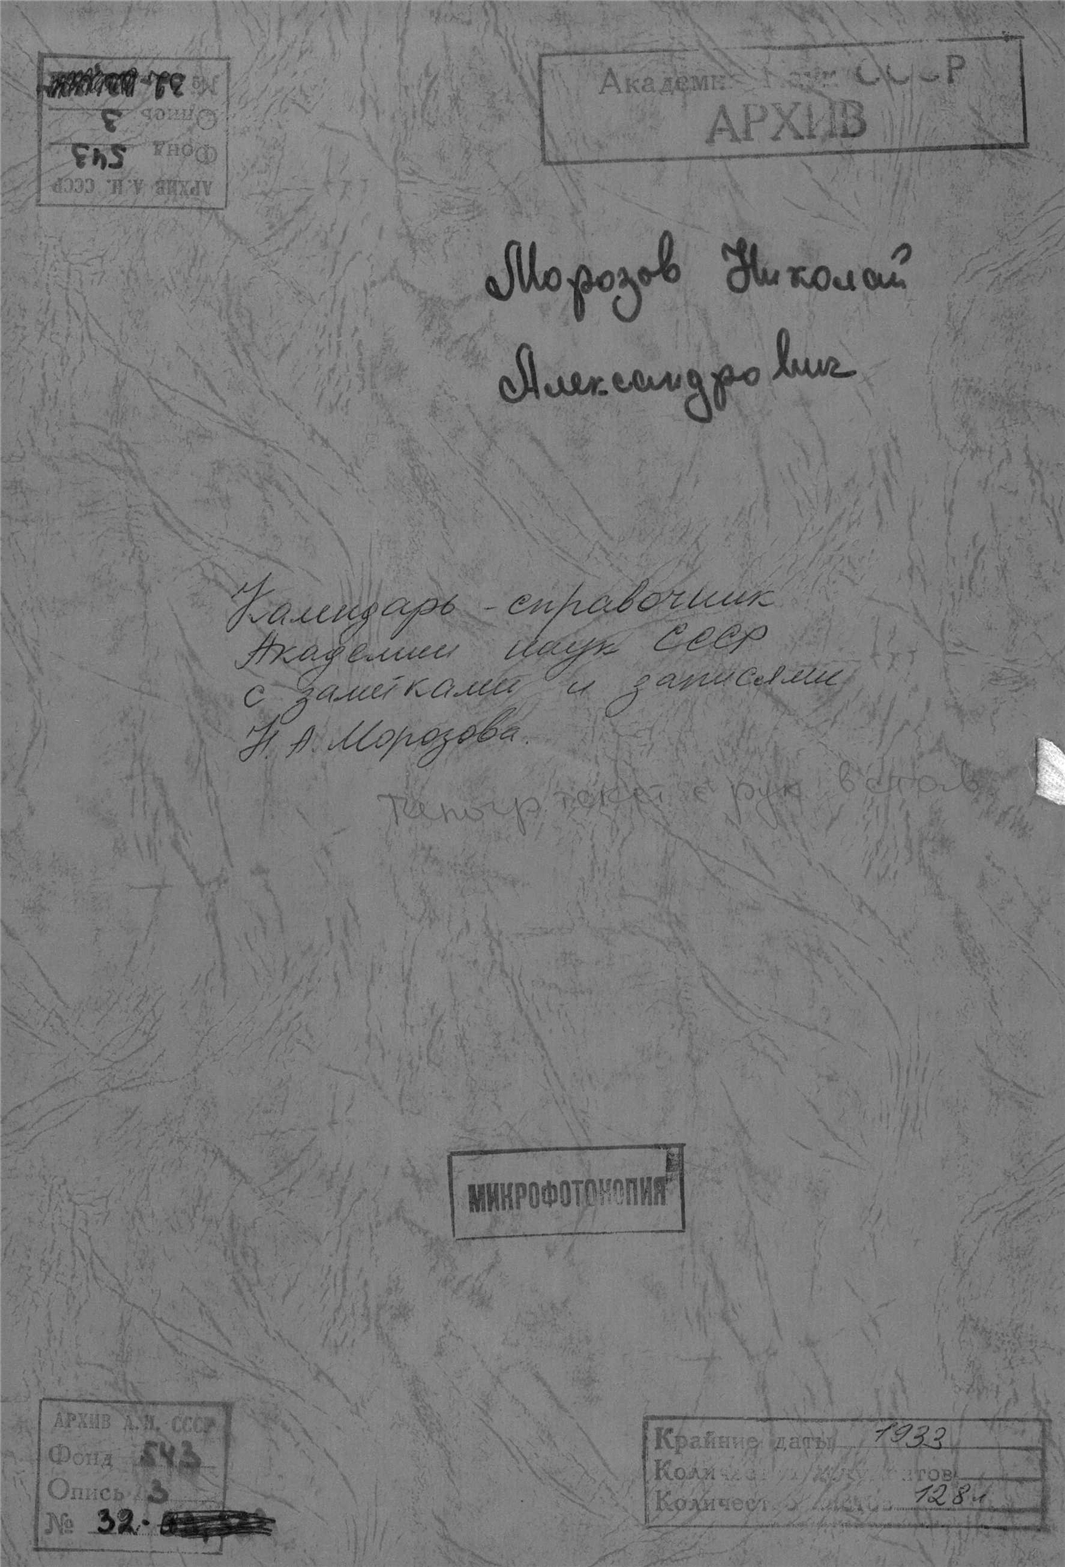 Академия Наук СССР
АРХИВ
АРХИВ А.Н. СССР
Фонд 543
Опись 3
№
Морозов Николай
Александрович
Календарь-справочник
Академии наук СССР
с заметками и записями
Н.А. Морозова.
Типогр текст с рук встав
МИКРОФОТОКОПИЯ
АРХИВ А.Н. СССР
Фонд 543
Опись 3
№ 32.
Крайние даты 1933
Количество документов
Количество листов 128 л